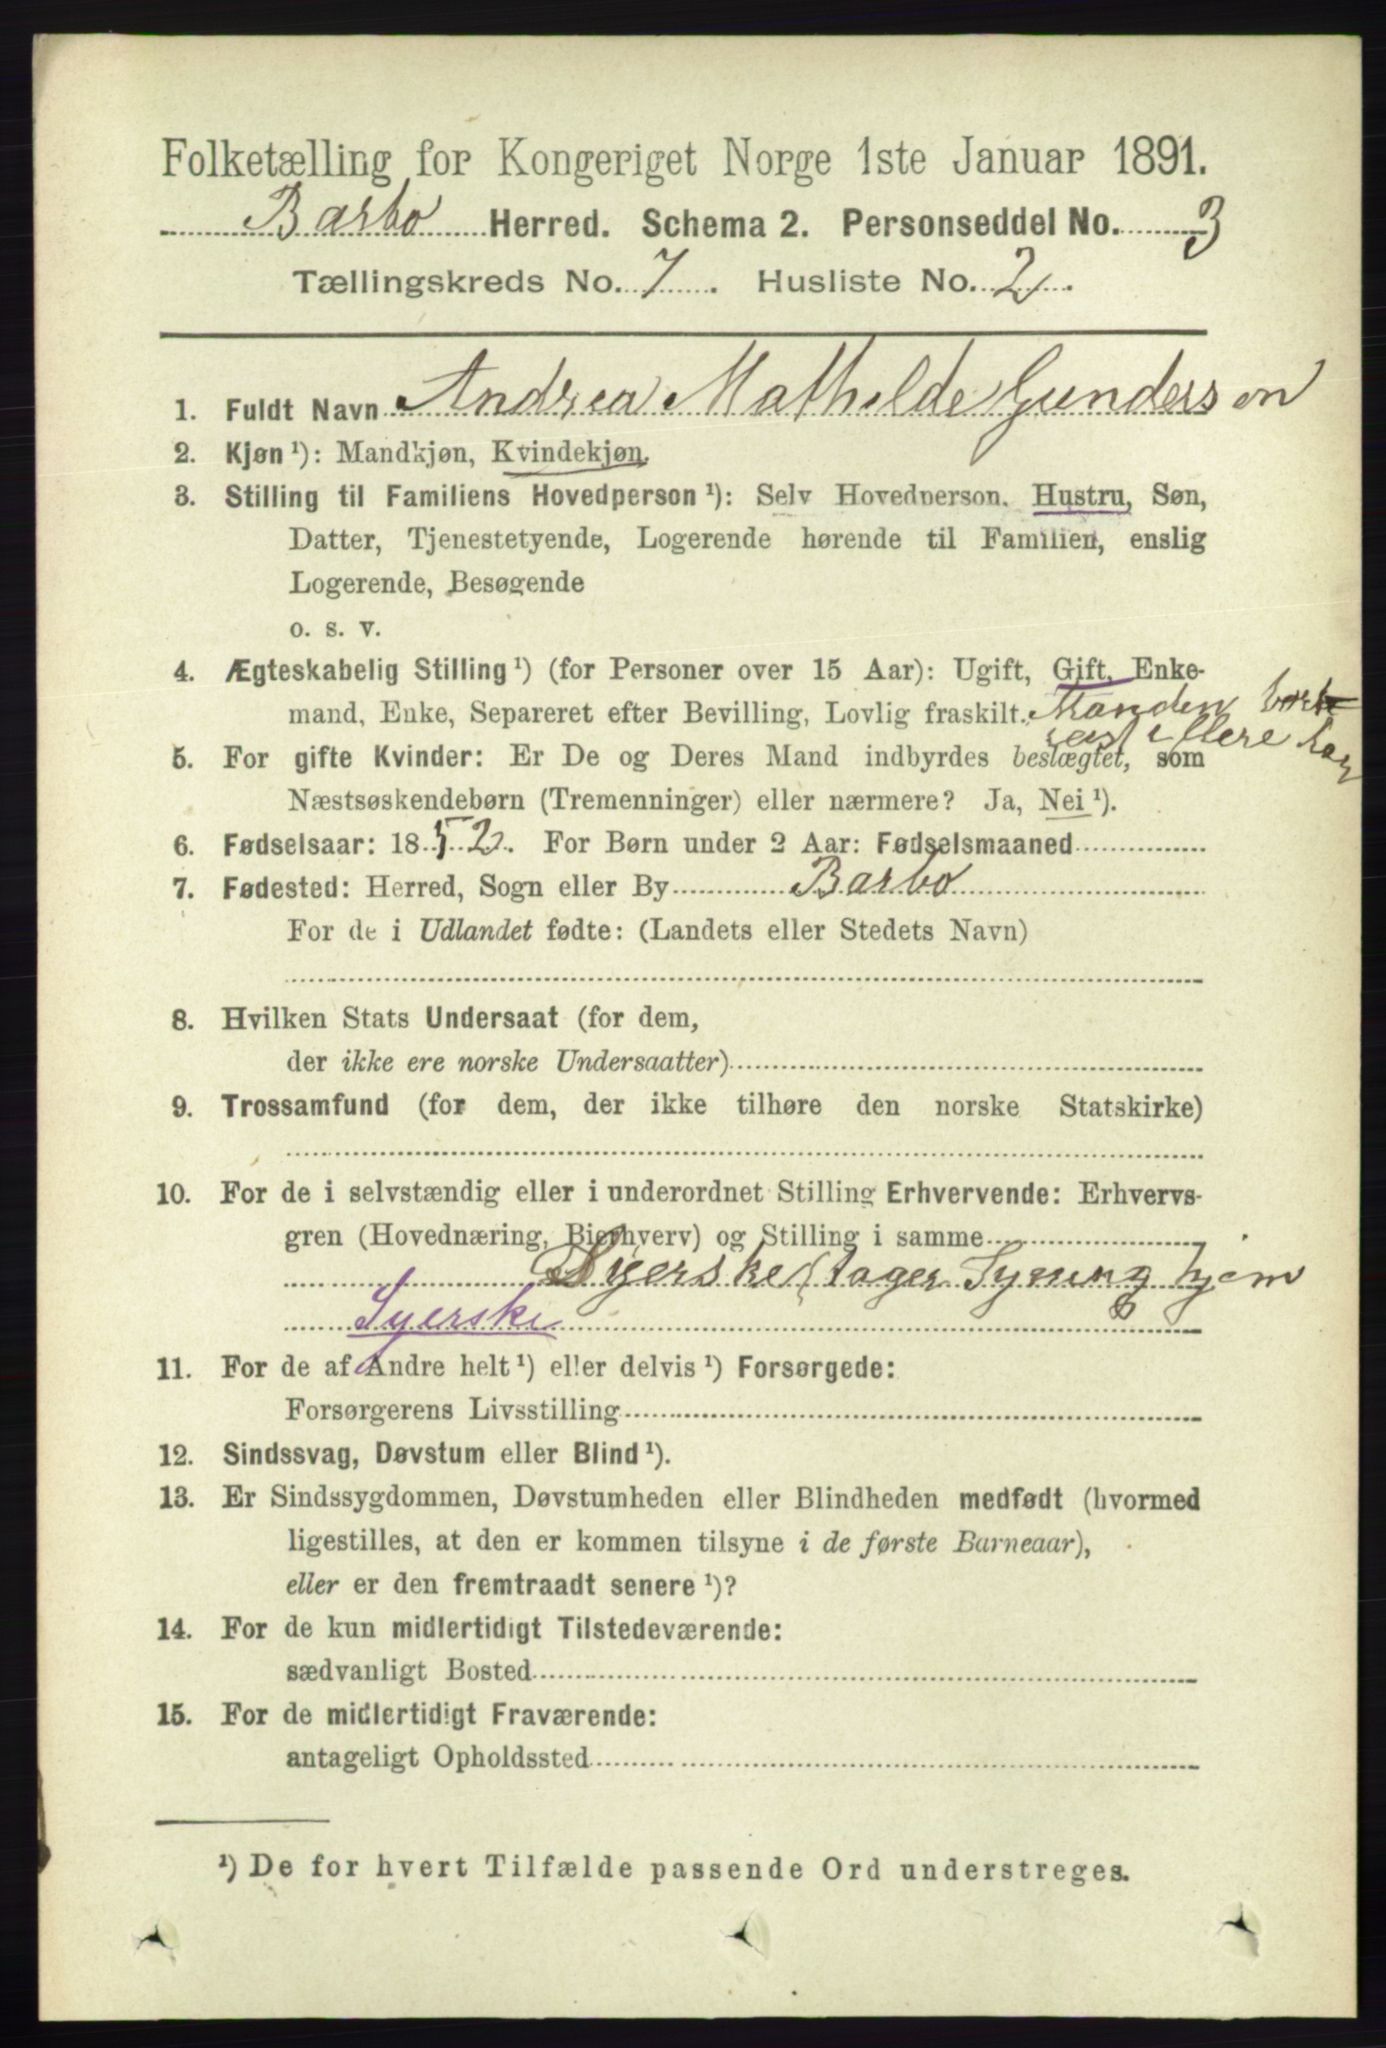 Folketælling for Kongeriget Norge 1ste Januar 1891.
Barbo Herred. Schema 2. Personseddel No. 3
Tællingskreds No. 7. Husliste No. 2.
1. Fuldt Navn Andrea Mathilde Gundersen
2. Kjøn ¹): Mandkjøn, Kvindekjøn.
3. Stilling til Familiens Hovedperson ¹): Selv Hovedperson, Hustru, Søn,
Datter, Tjenestetyende, Logerende hørende til Familien, enslig
Logerende, Besøgende
o. s. v.
4. Ægteskabelig Stilling ¹) (for Personer over 15 Aar): Ugift, Gift, Enke-
mand, Enke, Separeret efter Bevilling, Lovlig fraskilt. Manden bort
reist i flere Aar
5. For gifte Kvinder: Er De og Deres Mand indbyrdes beslægtet, som
Næstsøskendebørn (Tremenninger) eller nærmere? Ja, Nei ¹).
6. Fødselsaar: 1852. For Børn under 2 Aar: Fødselsmaaned
7. Fødested: Herred, Sogn eller By Barbo
For de i Udlandet fødte: (Landets eller Stedets Navn)
8. Hvilken Stats Undersaat (for dem,
der ikke ere norske Undersaatter)
9. Trossamfund (for dem, der ikke tilhøre den norske Statskirke)
10. For de i selvstændig eller i underordnet Stilling Erhvervende: Erhvervs-
gren (Hovednæring, Bierhverv) og Stilling i samme
Syerske (tager Syning hjem
Syerske
11. For de af Andre helt ¹) eller delvis ¹) Forsørgede:
Forsørgerens Livsstilling
12. Sindssvag, Døvstum eller Blind ¹).
13. Er Sindssygdommen, Døvstumheden eller Blindheden medfødt (hvormed
ligestilles, at den er kommen tilsyne i de første Barneaar),
eller er den fremtraadt senere ¹)?
14. For de kun midlertidigt Tilstedeværende:
sædvanligt Bosted
15. For de midlertidigt Fraværende:
antageligt Opholdssted
¹) De for hvert Tilfælde passende Ord understreges.